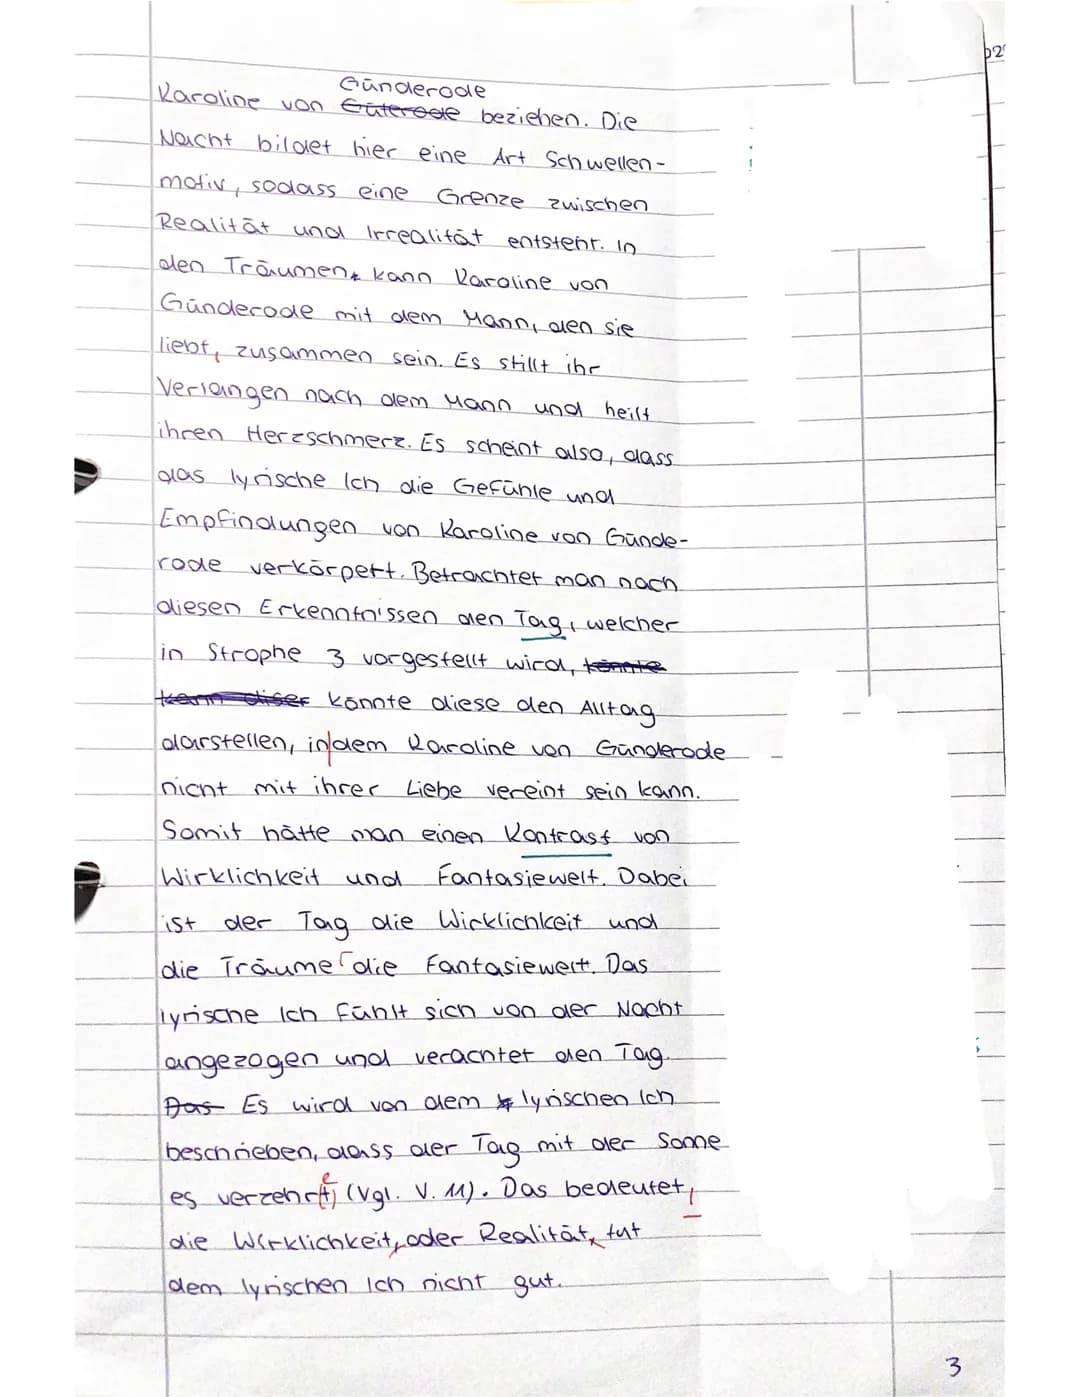 Günderode
Karoline von Güterode beziehen. Die
Nacht bildet hier eine Art Schwellen-
motiv, sodass eine Grenze zwischen
Realität und Irrealität entsteht. In
den Träumen kann Karoline von
Günderode mit dem Mann, den sie
liebt, zusammen sein. Es stillt ihr
Verlangen nach dem Mann und heilt
ihren Herzschmerz. Es scheint also, dass
das lyrische Ich die Gefühle und
Empfindungen von Karoline von Günde-
rode verkörpert. Betrachtet man nach
diesen Erkenntnissen den Tag, welcher
in Strophe 3 vorgestellt wird, könnte
kann diser könnte diese den Alltag
darstellen, in dem Karoline von Günderode
nicht mit ihrer Liebe vereint sein kann.
Somit hätte man einen Kontrast von
Wirklichkeit und Fantasiewelt. Dabei
ist der Tag die Wirklichkeit und
die Träume die Fantasiewelt. Das
lyrische Ich fühlt sich von der Nacht
angezogen und verachtet den Tag.
Das Es wird von dem lyrischen Ich
beschrieben, dass der Tag mit der Sonne
es verzehrt (Vgl. V. 11). Das bedeutet,
die Wirklichkeit, oder Realität, tut
dem lyrischen Ich nicht gut.
3